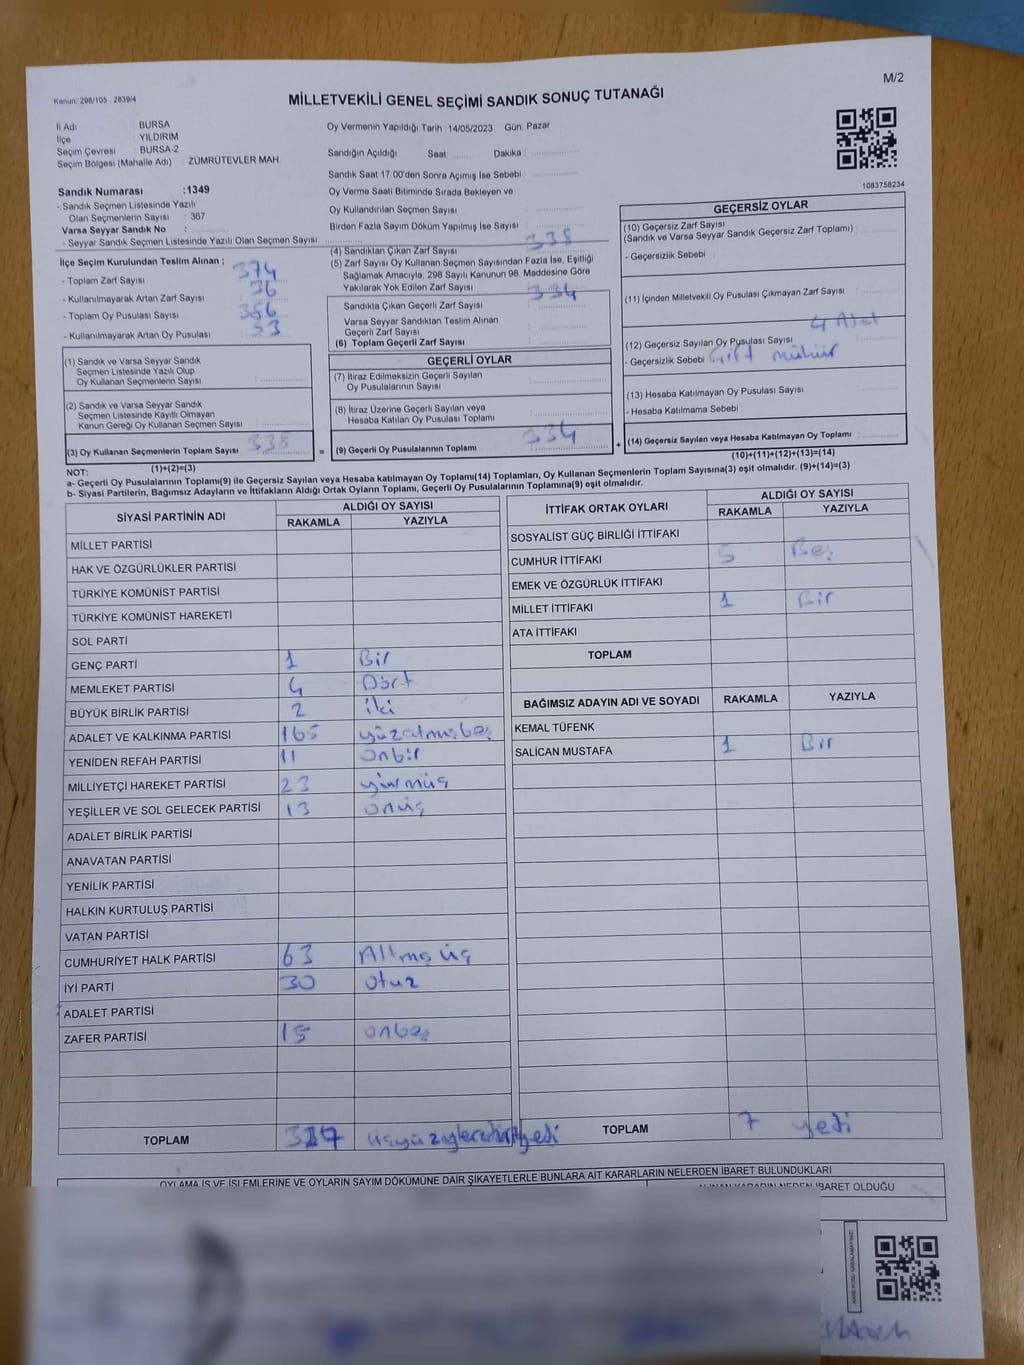 M/2
Kanun: 298/105 , 2839/4
MİLLETVEKİLİ GENEL SEÇİMİ SANDIK SONUÇ TUTANAĞI
İl Adı : BURSA
İlçe : YILDIRIM
Seçim Çevresi : BURSA-2
Seçim Bölgesi (Mahalle Adı) : ZÜMRÜTEVLER MAH.
Sandık Numarası :1349
- Sandık Seçmen Listesinde Yazılı
Olan Seçmenlerin Sayısı : 367
Varsa Seyyar Sandık No :
- Seyyar Sandık Seçmen Listesinde Yazılı Olan Seçmen Sayısı:
Oy Vermenin Yapıldığı Tarih :14/05/2023 Gün: Pazar
Sandığın Açıldığı Saat: Dakika :
Sandık Saat 17:00'den Sonra Açımış İse Sebebi :
Oy Verme Saati Bitiminde Sırada Bekleyen ve
Oy Kullandırılan Seçmen Sayısı :
Birden Fazla Sayım Döküm Yapılmış İse Sayısı :
1083758234
İlçe Seçim Kurulundan Teslim Alınan ;
- Toplam Zarf Sayısı : 374
- Kullanılmayarak Artan Zarf Sayısı : 36
- Toplam Oy Pusulası Sayısı :
- Kullanılmayarak Artan Oy Pusulası : 33
(1) Sandık ve Varsa Seyyar Sandık
Seçmen Listesinde Yazılı Olup
Oy Kullanan Seçmenlerin Sayısı :
(2) Sandık ve Varsa Seyyar Sandık
Seçmen Listesinde Kayıtlı Olmayan
Kanun Gereği Oy Kullanan Seçmen Sayısı :
(3) Oy Kullanan Seçmenlerin Toplam Sayısı : 338
(1)+(2)=(3)
(4) Sandıktan Çıkan Zarf Sayısı : 338
(5) Zarf Sayısı Oy Kullanan Seçmen Sayısından Fazla İse, Eşitliği
Sağlamak Amacıyla, 298 Sayılı Kanunun 98. Maddesine Göre
Yakılarak Yok Edilen Zarf Sayısı : 334
Sandıkta Çıkan Geçerli Zarf Sayısı :
Varsa Seyyar Sandıktan Teslim Alınan
Geçerli Zarf Sayısı :
(6) Toplam Geçerli Zarf Sayısı :
GEÇERLİ OYLAR
(7) İtiraz Edilmeksizin Geçerli Sayılan
Oy Pusulalarının Sayısı :
(8) İtiraz Üzerine Geçerli Sayılan veya
Hesaba Katılan Oy Pusulası Toplamı :
= (9) Geçerli Oy Pusulalarının Toplamı : 334
GEÇERSİZ OYLAR
(10) Geçersiz Zarf Sayısı
(Sandık ve Varsa Seyyar Sandık Geçersiz Zarf Toplamı) :
- Geçersizlik Sebebi :
(11) İçinden Milletvekili Oy Pusulası Çıkmayan Zarf Sayısı :
4 Adet
(12) Geçersiz Sayılan Oy Pusulası Sayısı :
- Geçersizlik Sebebi : Çift mühür
(13) Hesaba Katılmayan Oy Pusulası Sayısı :
- Hesaba Katılmama Sebebi :
+ (14) Geçersiz Sayılan veya Hesaba Katılmayan Oy Toplamı :
(10)+(11)+(12)+(13)=(14)
NOT:
a- Geçerli Oy Pusulalarının Toplamı(9) ile Geçersiz Sayılan veya Hesaba katılmayan Oy Toplamı(14) Toplamları, Oy Kullanan Seçmenlerin Toplam Sayısına(3) eşit olmalıdır. (9)+(14)=(3)
b- Siyasi Partilerin, Bağımsız Adayların ve İttifakların Aldığı Ortak Oyların Toplamı, Geçerli Oy Pusulalarının Toplamına(9) eşit olmalıdır.
SİYASİ PARTİNİN ADI ALDIĞI OY SAYISI
RAKAMLA YAZIYLA
MİLLET PARTİSİ
HAK VE ÖZGÜRLÜKLER PARTİSİ
TÜRKİYE KOMÜNİST PARTİSİ
TÜRKİYE KOMÜNİST HAREKETİ
SOL PARTİ
GENÇ PARTİ 1 Bir
MEMLEKET PARTİSİ 4 Dört
BÜYÜK BİRLİK PARTİSİ 2 iki
ADALET VE KALKINMA PARTİSİ 165 yüzatmışbeş
YENİDEN REFAH PARTİSİ 11 onbir
MİLLİYETÇİ HAREKET PARTİSİ 23 yirmüç
YEŞİLLER VE SOL GELECEK PARTİSİ 13 onüç
ADALET BİRLİK PARTİSİ
ANAVATAN PARTİSİ
YENİLİK PARTİSİ
HALKIN KURTULUŞ PARTİSİ
VATAN PARTİSİ
CUMHURİYET HALK PARTİSİ 63 Altmış üç
İYİ PARTİ 30 otuz
ADALET PARTİSİ
ZAFER PARTİSİ 15 onbeş
TOPLAM
İTTİFAK ORTAK OYLARI ALDIĞI OY SAYISI
RAKAMLA YAZIYLA
SOSYALİST GÜÇ BİRLİĞİ İTTİFAKI
CUMHUR İTTİFAKI 5 Beş
EMEK VE ÖZGÜRLÜK İTTİFAKI
MİLLET İTTİFAKI 1 Bir
ATA İTTİFAKI
TOPLAM
BAĞIMSIZ ADAYIN ADI VE SOYADI RAKAMLA YAZIYLA
KEMAL TÜFENK
SALİCAN MUSTAFA 1 Bir
TOPLAM 7 yedi
OYLAMA İŞ VE İŞLEMLERİNE VE OYLARIN SAYIM DÖKÜMÜNE DAİR ŞİKAYETLERLE BUNLARA AİT KARARLARIN NELERDEN İBARET BULUNDUKLARI
ALINAN KARARIN NEDEN İBARET OLDUĞU